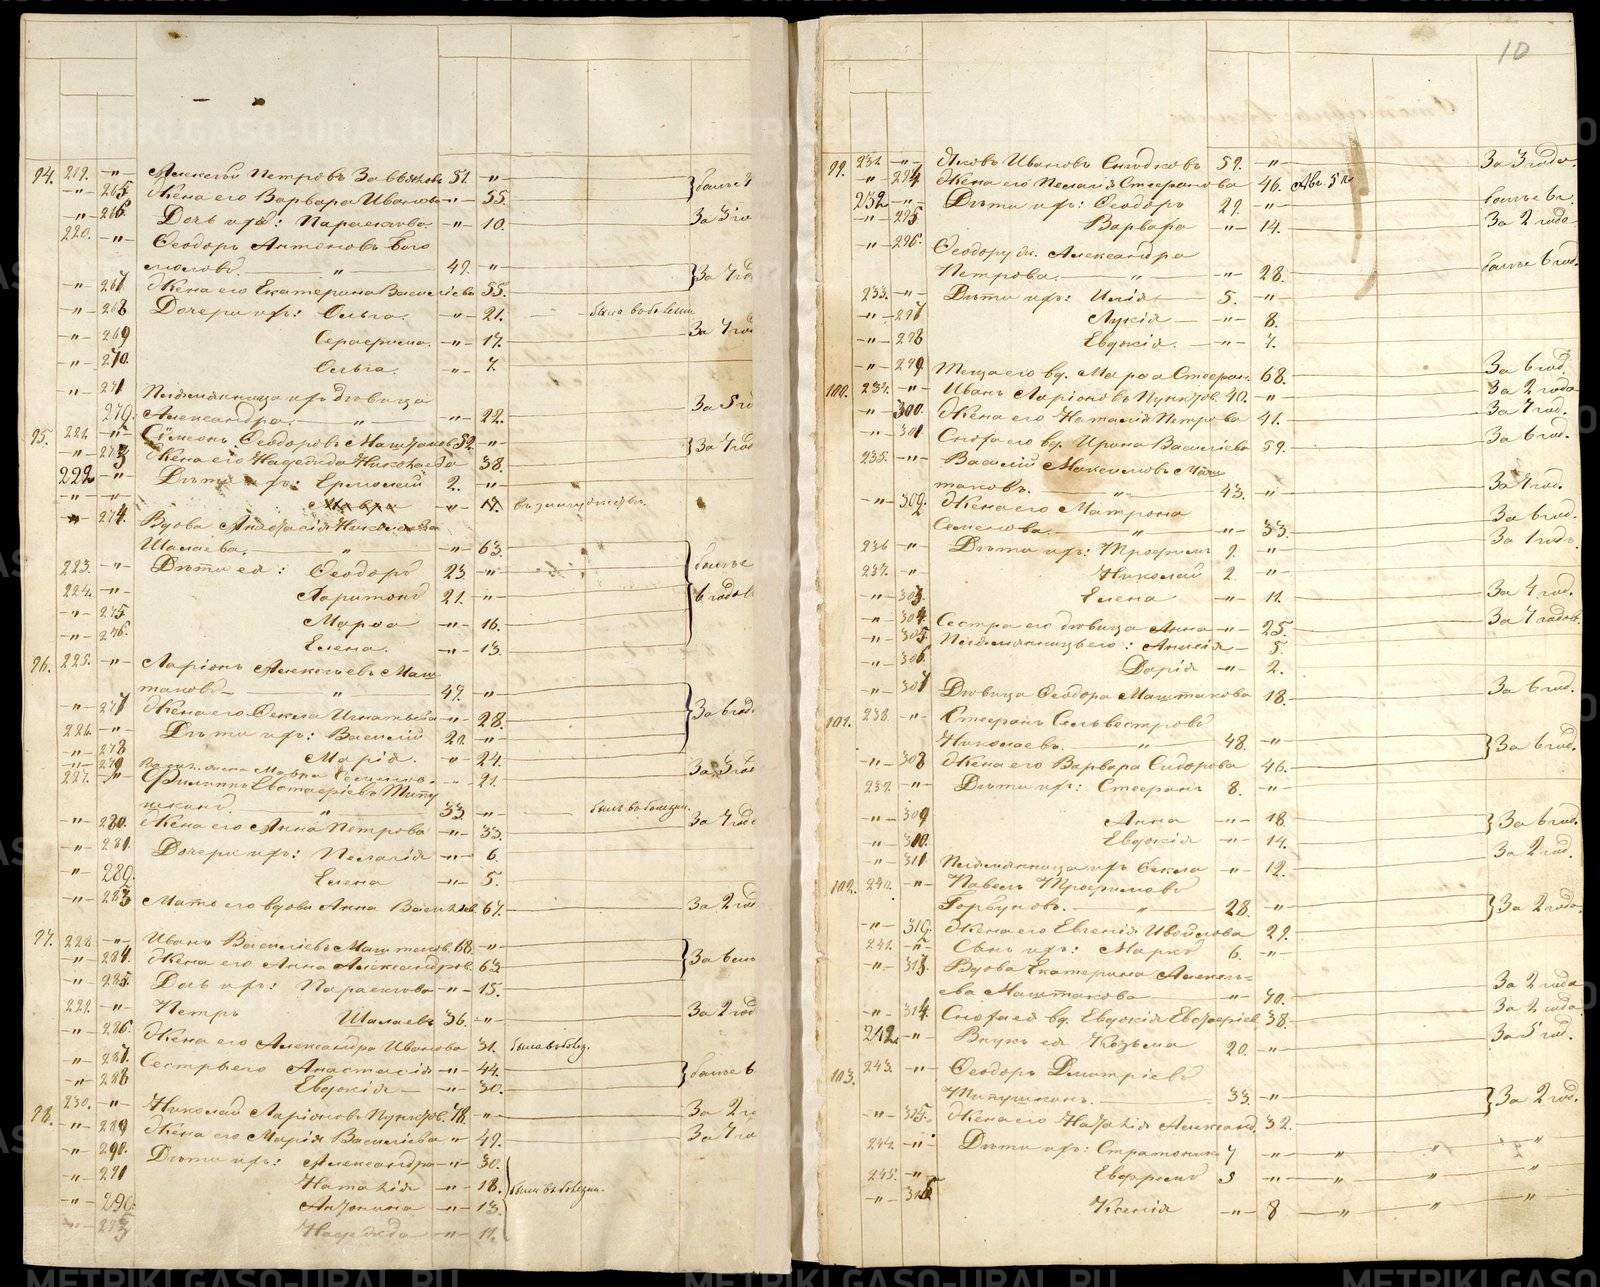 94. 219. —"— Алексѣй Петровъ 57. "
—"— 265. Жена его Варвара Иванова —"— 55. болѣе
—"— 266. Дочь ихъ: Параскева —"— 10. За 3 го
220. —"— Ѳеодоръ Антоновъ Бого
моловъ. " 49. " За 4 го
—"— 267 Жена его Екатерина Василіева 55.
—"— 268 Дочери ихъ: Ольга. —"— 21. была въ болѣзни
—"— 269 Серафима. —"— 17. За 4 го
—"— 270. Ольга. —"— 7.
—"— 271 Племянница ихъ дѣвица
272. Александра. " —"— 22. За 5 го
95. 221. —"— Сѵмеонъ Ѳеодоровъ Маштаковъ 52. —"— За 4 го
—"— 273 Жена его Надежда Николаева 38.
222. —"— Дѣти ихъ: Ермолай 2. —"—
—"— —"— Мавра —"— 17. въ замужествѣ.
—"— 274. Вдова Анастасія
Шалаева. " —"— 63.
223. —"— Дѣти ея: Ѳеодоръ 23. —"— болѣе
224. —"— Харитонъ 21. —"— 6 годовъ
—"— 275. Марѳа —"— 16.
—"— 276. Елена. —"— 13.
96. 225. —"— Ларіонъ Алексѣевъ Маш
таковъ " 49. —"—
—"— 277 Жена его Ѳекла Игнатьева —"— 28. За 6 год.
226. —"— Дѣти ихъ: Василій 20. —"—
—"— 278 Марія. " 24.
—"— 279 жена Марѳа —"— 21. За 3 го
227. —"— Филиппъ Евстафіевъ Типу
" 33. —"— былъ въ болѣзни.
—"— 280. Жена его Анна Петрова —"— 33. За 4 го
—"— 281. Дочери ихъ: Пелагія —"— 6.
—"— 282. Елена —"— 5.
—"— 283 Мать его вдова Анна Василіев. 67. За 2 го
97. 228. —"— Иванъ Василіевъ Маштаков. 68. —"—
—"— 284. Жена его Анна Александров. 63 За 6
—"— 285. Дочь ихъ: Параскева —"— 15.
229. —"— Петръ Шалаевъ 36. —"— За 2 го
—"— 286. Жена его Александра Иванова 31. была въ болѣз.
—"— 287. Сестры его Анастасія —"— 44. болѣе 6
—"— 288 Евдокія —"— 30.
98. 230. —"— Николай Ларіоновъ 48. —"— За 2 го
—"— 289 Жена его Марія Василіева " 49. За 4 го
—"— 290. Дѣти ихъ: Александра —"— 30.
—"— 291 Наталія —"— 18. были въ болѣзни.
—"— 292. Антонина —"— 13.
—"— 293 Надежда —"— 11.
10
99. 231. —"— Яковъ Ивановъ 52. —"— За 3 года.
—"— 294 Жена его Пелагія Стефанова 46. Авг. 5
232 —"— Дѣти ихъ: Ѳеодоръ 22. —"— болѣе 6 г.
—"— 295 Варвара —"— 14. За 2 года
—"— 296. Ѳеодору ж. Александра
Петрова. " —"— 28. болѣе 6 год.
233. —"— Дѣти ихъ: Илія 5. —"—
—"— 297 Лукія —"— 8.
—"— 298 Евдокія. —"— 7.
—"— 299 Теща его вд. Марѳа Стефан. 68. За 6 год.
100. 234. —"— Иванъ Ларіоновъ 40. —"— За 2 года
—"— 300. Жена его Наталія Петрова 41. За 4 год.
—"— 301 Сноха его вд. Ирина Василіева 52. За 6 год.
235. —"— Василій Максимовъ Маш
таковъ. " 43. —"— За 4 год.
—"— 302. Жена его Матрона
Семенова. " —"— 33. За 6 год.
236 —"— Дѣти ихъ: Трофимъ 9. —"— За 1 годъ
237. —"— Николай 2. —"—
—"— 303. Елена —"— 11. За 4 год.
—"— 304. Сестра его дѣвица Анна —"— 25. За 4 годовъ.
—"— 305. Племянницы его: Анисія —"— 5.
—"— 306 Дарія —"— 2.
—"— 307 Дѣвица Ѳеодора Маштакова 18. За 6 год.
101. 238. —"— Стефанъ Сельвестровъ
Николаевъ. " 48. —"— За 6 год.
—"— 308 Жена его Варвара Сидорова 46.
239. —"— Дѣти ихъ: Стефанъ 8. —"—
—"— 309 Анна —"— 18. За 6 год.
—"— 310. Евдокія —"— 14.
—"— 311 Племянница ихъ Ѳекла —"— 12. За 2 год.
102. 240. —"— Павелъ Трофимовъ
Горбуновъ. " 28. —"— За 2 года
—"— 312. Жена его Евгенія 29.
241. —"— Сынъ ихъ: Маркъ 6. —"—
—"— 313. Вдова Екатерина Алексѣ-
ева Маштакова —"— 70. За 2 года
—"— 314. Сноха ея вд. Евдокія Евстафіев. 38. За 2 года
242. —"— Внукъ ея Козьма 20. —"— За 5 год.
103. 243. —"— Ѳеодоръ Дмитріевъ
33. —"— За 2 год.
—"— 315. Жена его Наталія Александ. 32.
244. —"— Дѣти ихъ: Стратоникъ 7 —"— " " "
245. —"— Евфремъ 3 —"— " " "
—"— 316 Ксенія —"— 8 " " "
METRIKI.GASO-URAL.RU